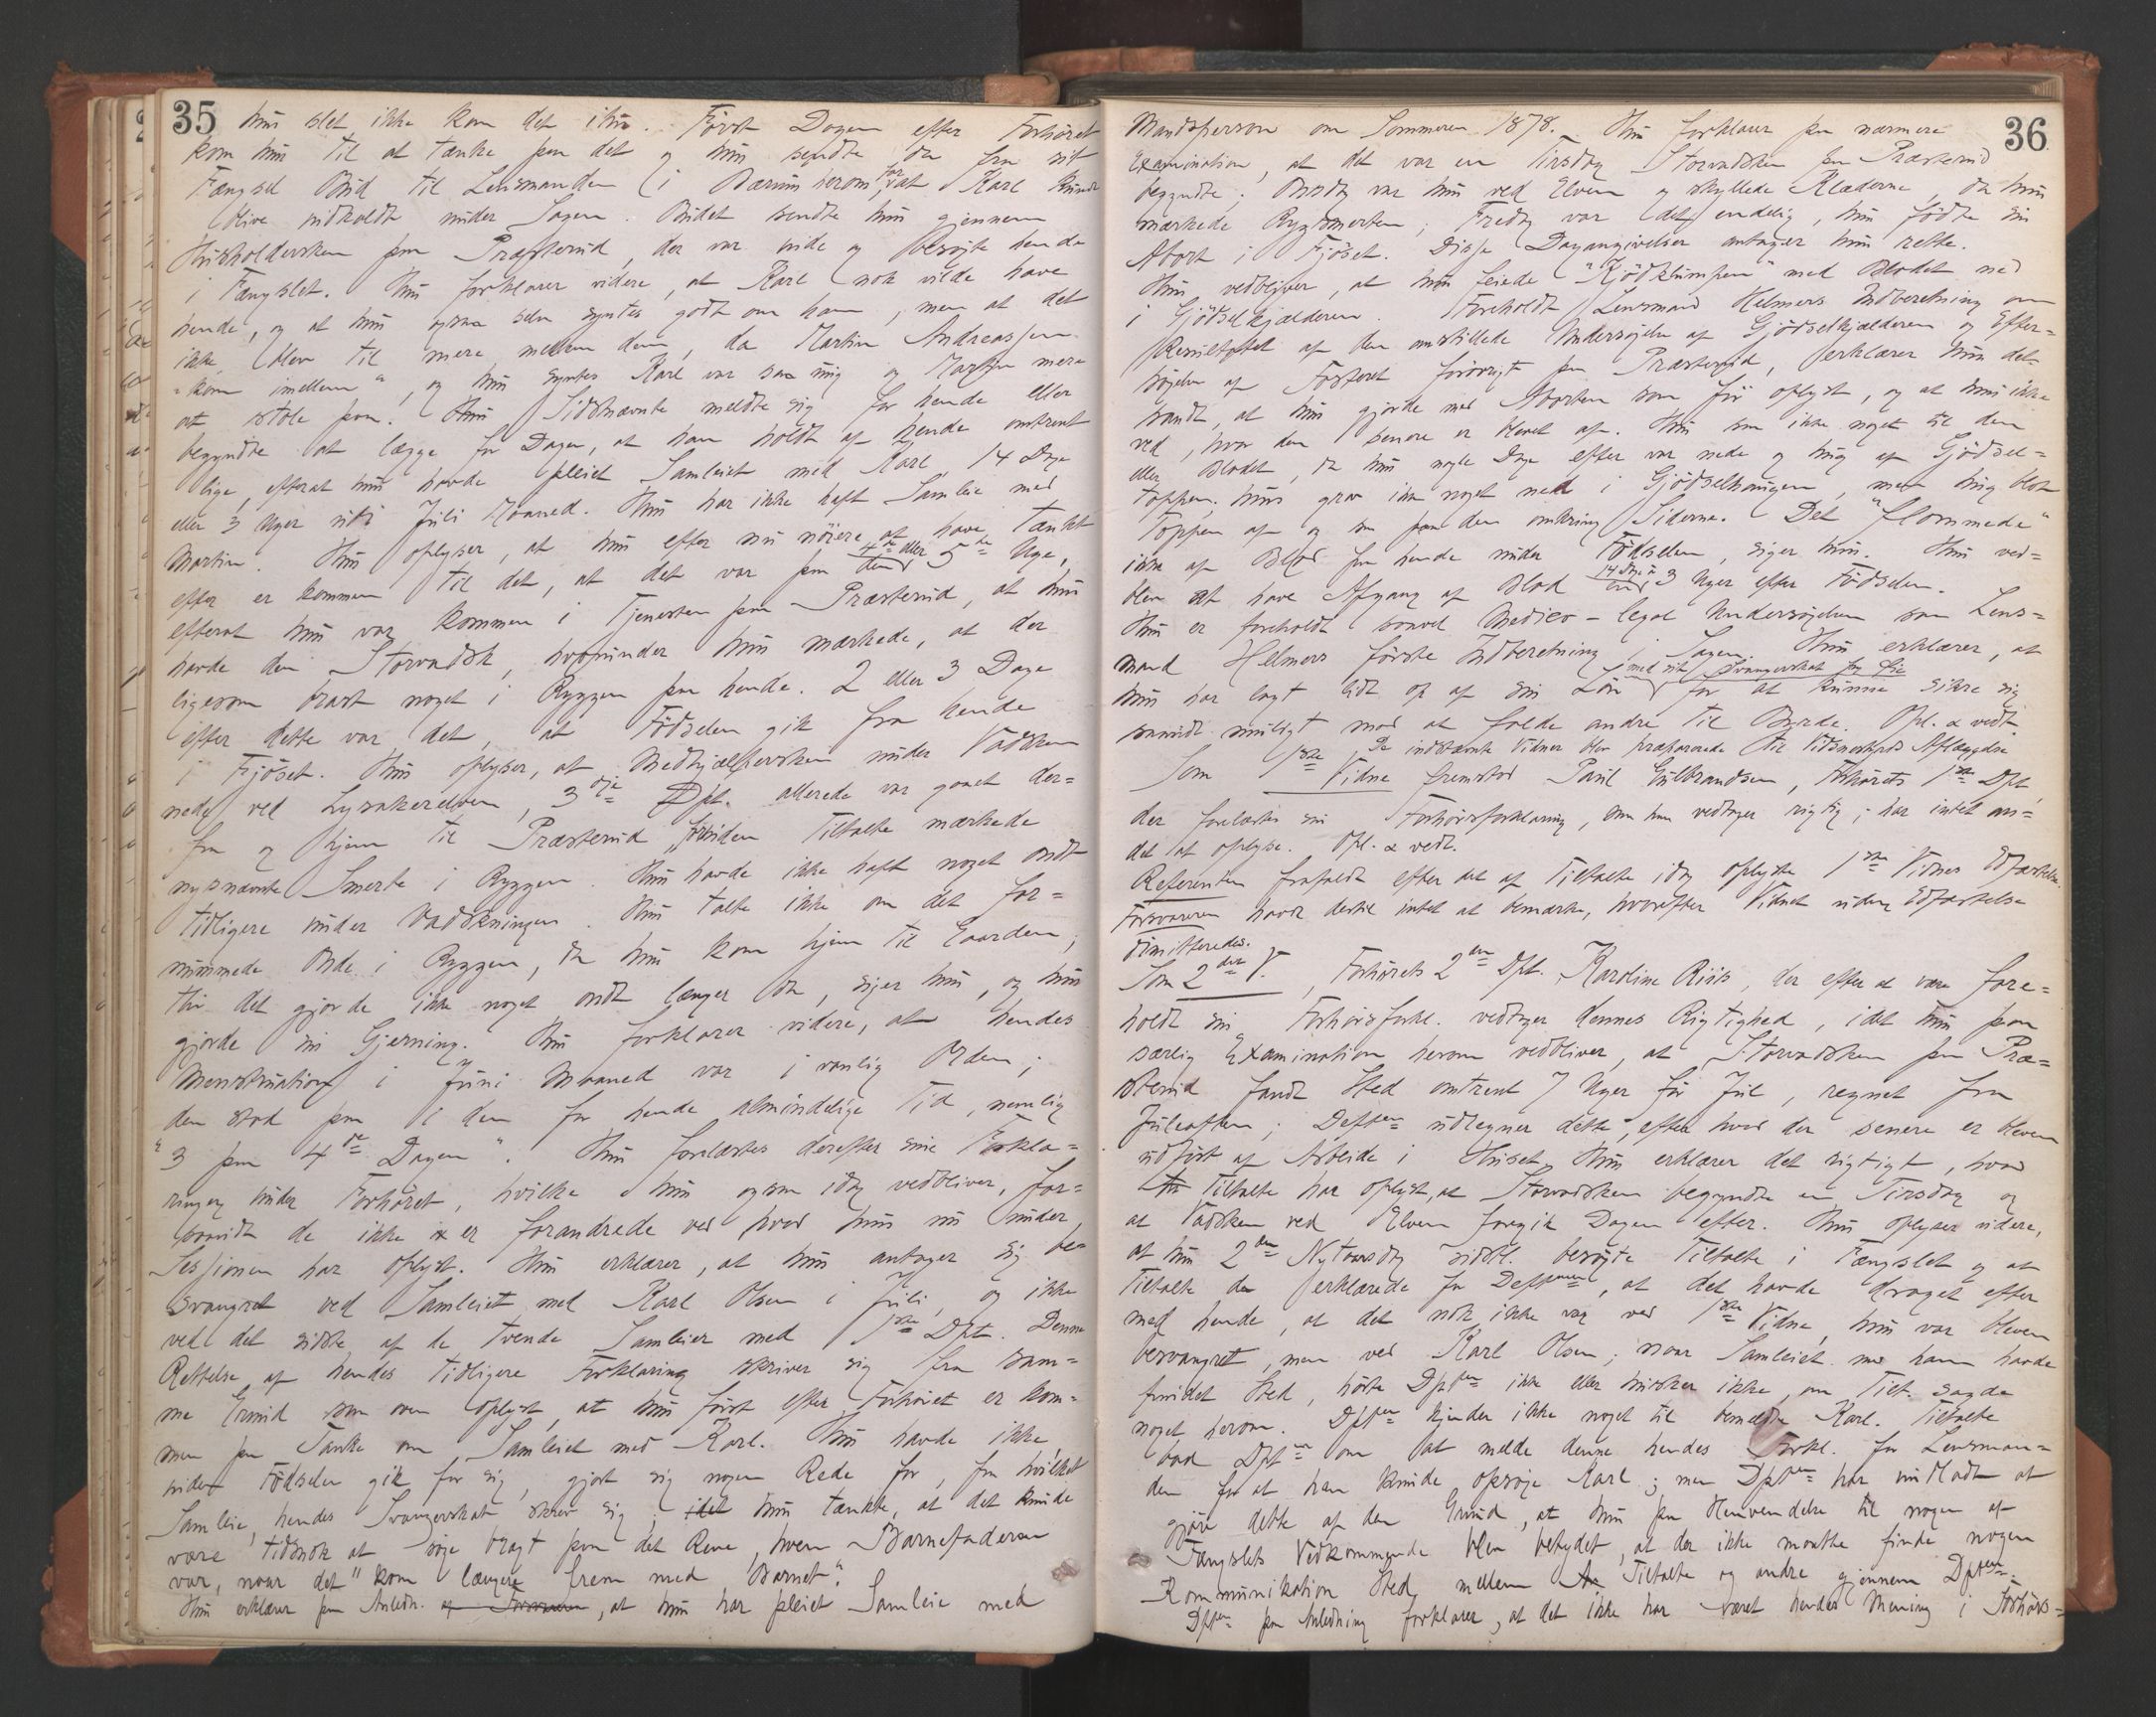 35
hun slet ikke kom det ihu. Først Dagen efter Forhøret
kom hun til at tænke paa det og hun sendte da fra sit
Fængsel Bud til Lensmanden i Bærum herom, for at Karl kunde
blive indkaldt under Sagen. Budet sendte hun gjennem
Husholdersken paa Præsterud, der var inde og besøgte hende
i Fængslet. Hun forklarer videre, at Karl nok vilde have
hende, og at hun ogsaa selv syntes godt om ham, men at det
ikke blev til mere mellem dem, da Martin Andreassen
"kom imellem", og hun syntes Karl var saa ung og Martin mere
at stole paa. Sidstnævnte meldte sig for hende eller
begyndte at lægge for Dagen, at han holdt af hende omtrent
lige, efterat hun havde pleiet Samleiet med Karl, 14 Dage
eller 3 Uger ud i Juli Maaned. Hun har ikke haft Samleie med
Martin. Hun oplyser, at hun efter nu nøiere at have tænkt
efter er kommen til det, at det var paa den 4de eller 5te Uge,
efterat hun var kommen i Tjenesten paa Præsterud, at hun
havde den Storvadsk, hvorunder hun mærkede, at der
ligesom brast noget i Ryggen paa hende. 2 eller 3 Dage
efter dette var det, at Fødselen gik fra hende
i Fjøset. Hun oplyser, at Medhjælpersken under Vadsken
nede ved Lysakerelven, 3die Dpt. allerede var gaaet der=
fra og hjem til Præsterud, førinden Tiltalte mærkede
nysnævnte Smerte i Ryggen. Hun havde ikke haft noget ondt
tidligere under Vadskningen. Hun talte ikke om det for=
nummede Onde i Ryggen, da hun kom hjem til Gaarden;
thi det gjorde ikke noget ondt længer da, siger hun, og hun
gjorde sin Gjerning. Hun forklarer videre, at hendes
Menstruation i Juni Maaned var i vanlig Orden;
den stod paa i den for hende almindelige Tid, nemlig
"3 paa 4de Dagen". Hun forelæstes derefter sine Forkla=
ringer under Forhøret, hvilke hun ogsaa idag vedbliver, for=
saavidt de ikke er forandrede ved hvad hun nu under
Sessionen har oplyst. Hun erklærer, at hun antager sig be=
svangret ved Samleiet med Karl Olsen i Juli, og ikke
ved det sidste af de tvende Samleier med 1ste Dpt. Denne
Rettelse af hendes tidligere Forklaring skriver sig fra sam=
me Grund som oven oplyst, at hun først efter Forhøret er kom=
men paa Tanke om Samleiet med Karl. Hun havde ikke
inden Fødselen gik for sig, gjort sig nogen Rede for, fra hvilket
Samleie hendes Svangerskab skrev sig, idet hun tænkte, at det kunde
være tidsnok at søge bragt paa det Rene, hvem Barnefaderen
var, naar det "kom længere frem med Barnet".
Hun erklærer paa Anledn. af Forsvareren, at hun har pleiet Samleie med
36
Mandsperson om Sommeren 1878. Hun forklarer paa nærmere
Examination, at det var en Tirsdag Storvadsken paa Præsterud
begyndte; Onsdag var hun ved Elven og skyllede Klæderne, da hun
mærkede Rygsmerten; Fredag var det endelig, hun fødte sin
Abort i Fjøset. Disse Dagangivelser antager hun rette.
Hun vedbliver, at hun feiede "Kjødklumpen" med Blodet ned
i Gjødselkjælderen. Foreholdt Lensmand Helmers Indberetning om
Resultatet af den anstillede Undersøgelse af Gjødselkjælderen og Efter=
søgelse af Fosteret forøvrigt paa Præsterud, erklærer hun det
sandt, at hun gjorde med Aborten som før oplyst, og at hun ikke
ved, hvor den senere er blevet af. Hun saa ikke noget til den
eller Blodet, da hun nogle Dage efter var nede og hug af Gjødsel=
toppen; hun grov ikke noget ned i Gjødselhaugen, men hug blot
Toppen af og saa paa den omkring Siderne. Det "flommede"
ikke af Blod fra hende under Fødselen, siger hun. Hun ved=
blev at have Afgang af Blod 14 Dage à 3 Uger efter Fødselen.
Hun er foreholdt saavel Medico-legal Undersøgelsen som Lens=
mand Helmers første Indberetning i Sagen. Hun erklærer, at
hun har lagt lidt op af sin Løn med sit Svangerskab for Øie for at kunne sikre sig
saavidt muligt mod at falde andre til Byrde. Opl. & vedt.
De indstævnte Vidner blev præparerede til Vidnesbyrds Aflæggelse
Som 1ste Vidne fremstod Paul Gulbrandsen, Forhørets 1ste Dpt,
der forelæstes sin Forhørsforklaring, som han vedtager rigtig; har intet an=
det at oplyse. Opl. & vedt.
Referenten frafaldt efter det af Tiltalte idag oplyste 1ste Vidnes Edfæstelse.
Forsvareren havde dertil intet at bemærke, hvorefter Vidnet uden Edfæstelse
dimitteredes.
Som 2det V., Forhørets 2den Dpt. Karoline Riis, der efter at være fore=
holdt sin Forhørsforkl. vedtager dennes Rigtighed, idet hun paa
særlig Examination herom vedbliver, at Storvadsken paa Præ=
sterud fandt Sted omtrent 7 Uger før Jul, regnet fra
Juleaften; Dept.en udregner dette, efter hvad der senere er bleven
udført af Arbeide i Huset. Hun erklærer det rigtigt, hvad
Tiltalte har oplyst, at Storvadsken begyndte en Tirsdag og
at Vadsken ved Elven foregik Dagen efter. Hun oplyser videre,
at hun 2den Nytaarsdag sidstl. besøgte Tiltalte i Fængslet og at
Tiltalte da erklærede for Dept.en, at det havde draget efter
med hende, at det nok ikke var ved 1ste Vidne, hun var bleven
besvangret, men ved Karl Olsen; naar Samleiet med ham havde
fundet Sted, hørte Dpt.en ikke eller husker ikke, om Tilt. sagde
noget herom. Dpt.en kjender ikke noget til bemeldte Karl. Tiltalte
bad Dpt.en om at melde denne hendes Forkl. for Lensman=
den for at han kunde opsøge Karl; men Dpt.en har undladt at
gjøre dette af den Grund, at hun paa Henvendelse til nogen af
Fængslets Vedkommende blev betydet, at der ikke maatte finde nogen
Kommunikation Sted mellem Tiltalte og andre gjennem Dpt.en.
Dpt.en paa Anledning forklarer, at det ikke har været hendes Mening i Forhørs=